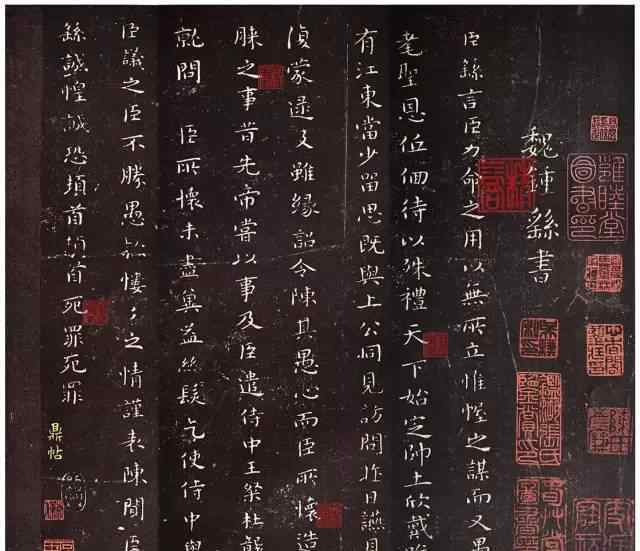 魏鍾繇書
臣繇言臣力命之用以無所立惟幄之謀而又愚
耄聖恩低佪待以殊禮天下始定師土欣戴
有江東當少留思既與上公同見訪問昨日讌見
復蒙逮及雖緣詔令陳其愚心而臣所懷造
膝之事昔先帝嘗以事及臣遣侍中王粲杜襲
就問 臣所懷未盡冀益絲髮乞使侍中與
臣議之臣不勝愚款慺々之情謹表陳聞臣
繇誠惶誠恐頓首頓首死罪死罪
鼎帖